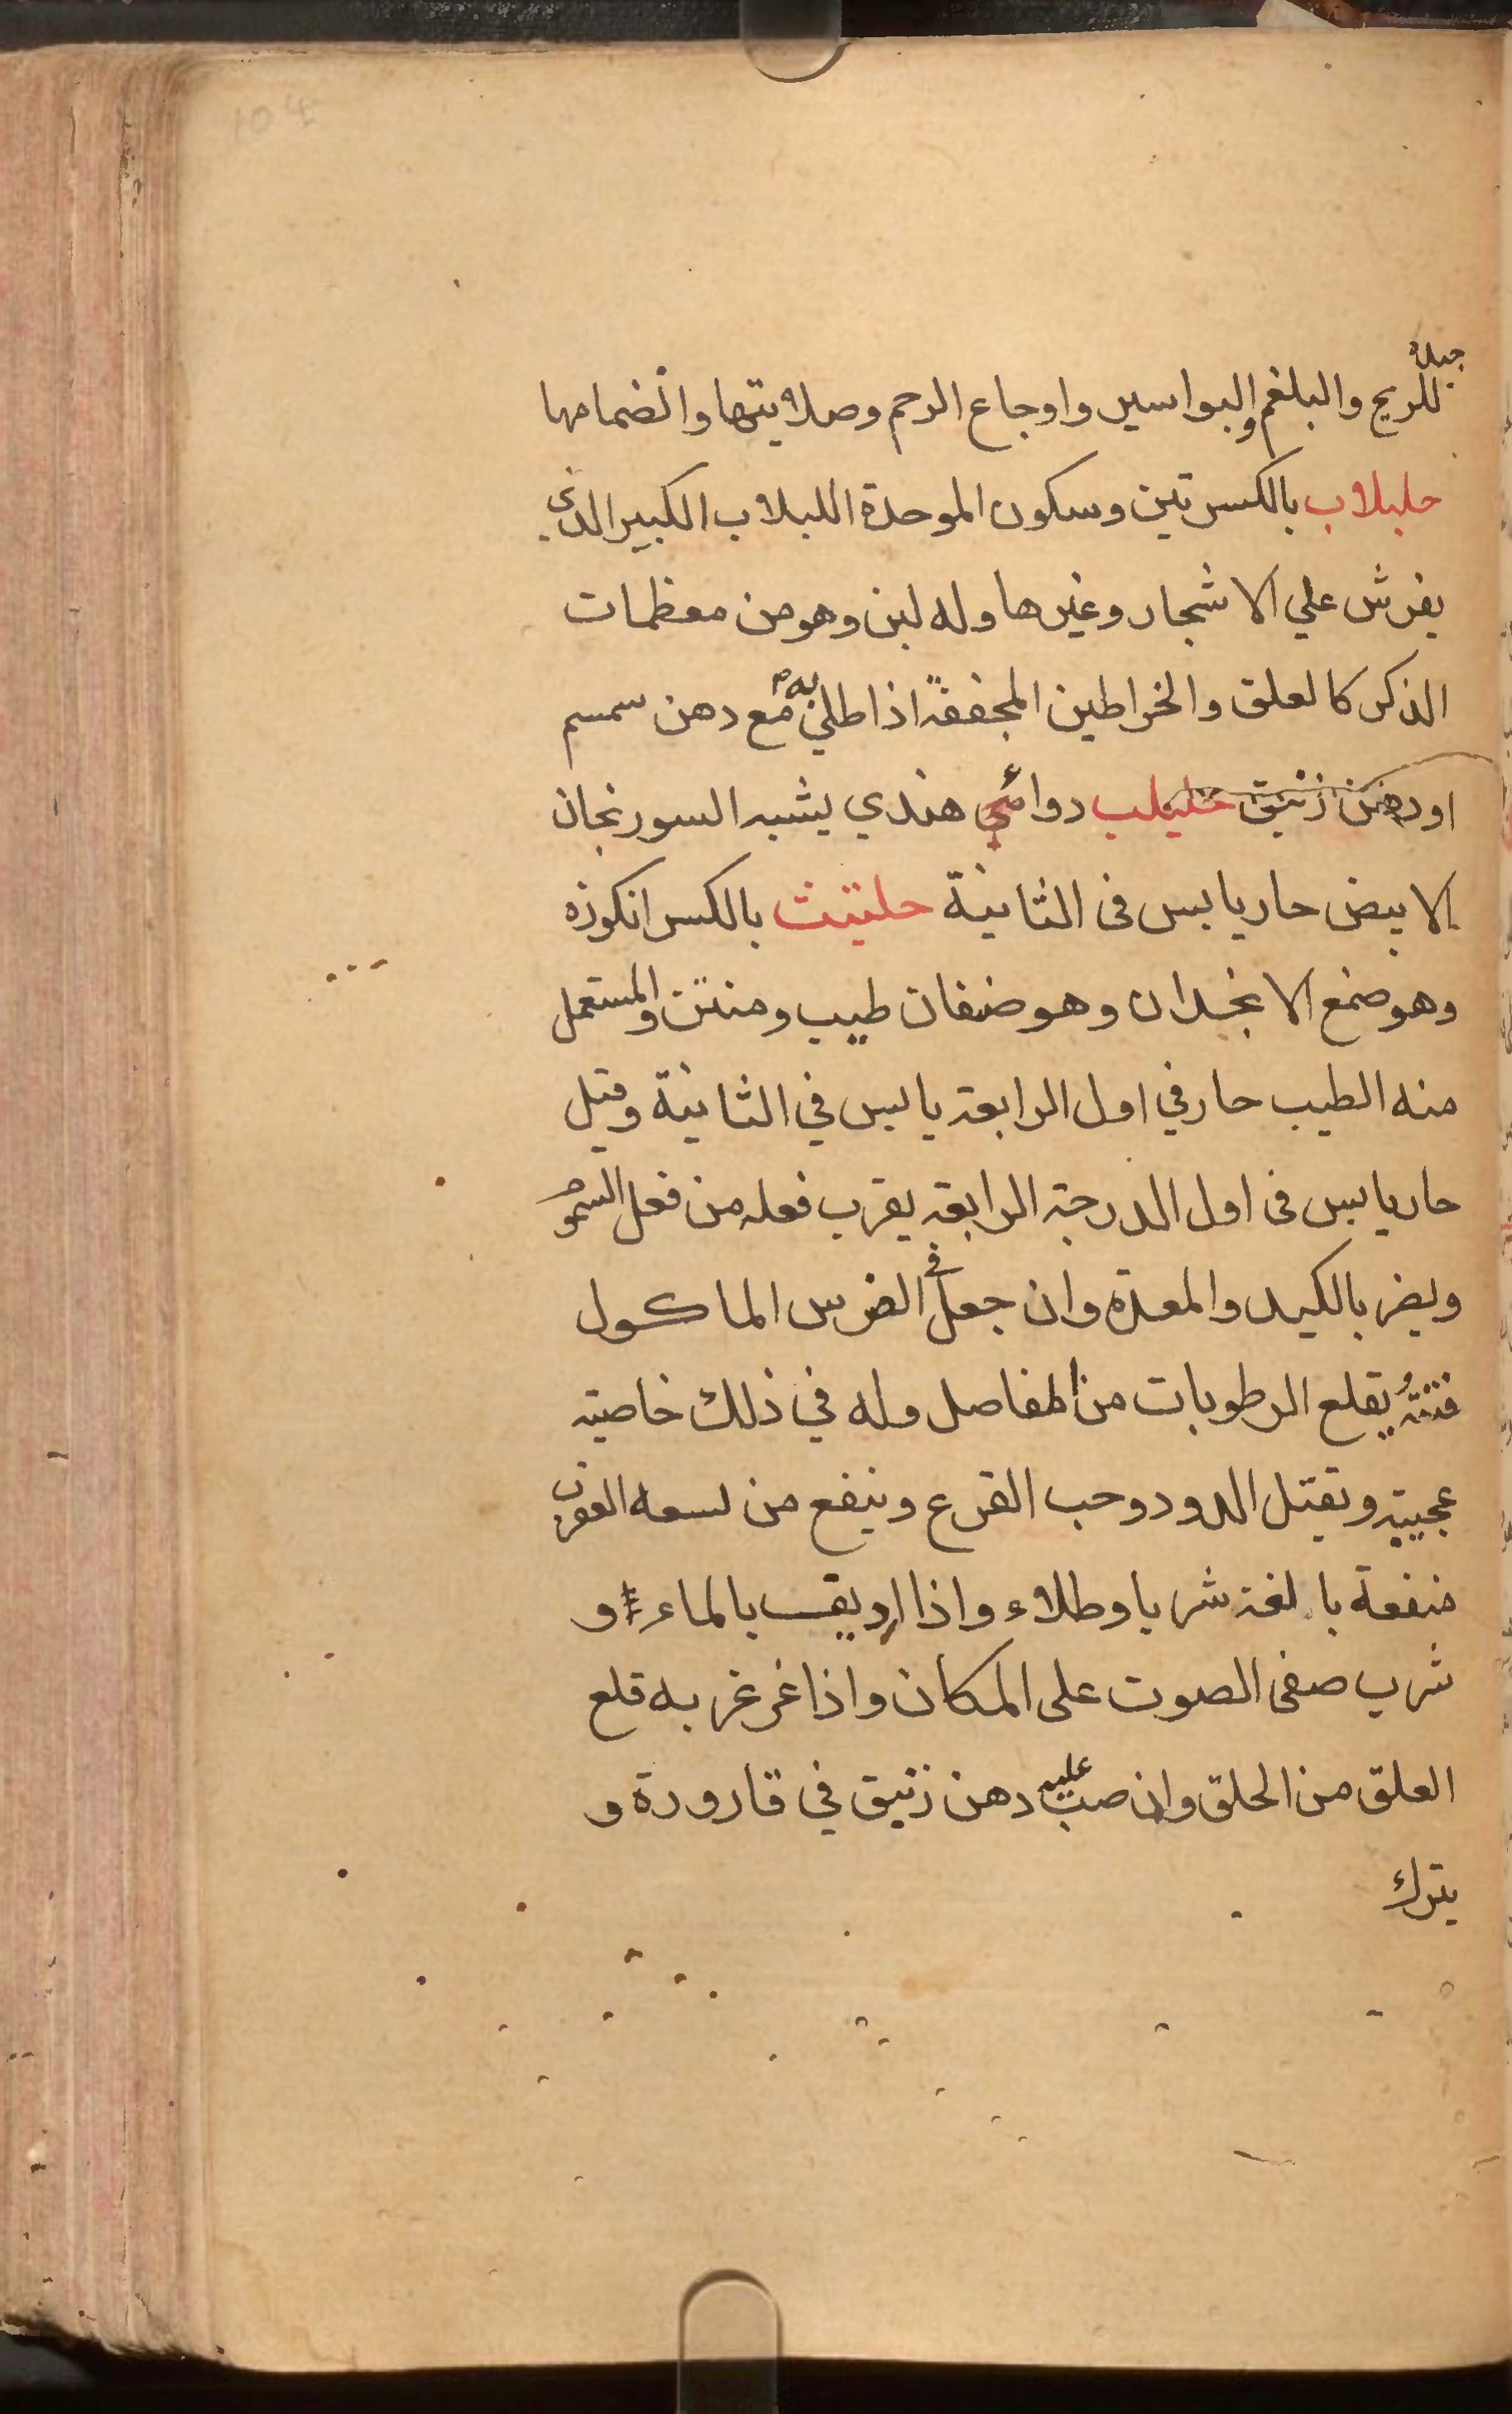 104
جيد
للريح والبلغم والبواسير واوجاع الرحم وصلابتها وانضمامها
حلبلاب بالكسرتين وسكون الموحدة اللبلاب الكبير الذي
يفرش علي الاشجار وغيرها وله لبن وهو من معظمات
الذكر كالعلق والخراطين المجففة اذا طلي به مع دهن سمسم
او دهن زنبق حليلب هندي يشبه السورنجان
الابيض حار يابس فى الثانية حلتيث بالكسر انكوزه
وهو صمغ الانجدان وهو صنفان طيب ومنتن والمستعمل
منه الطيب حار في اول الرابعة يابس في الثانية وقيل
حار يابس فى اول الدرجة الرابعة يقرب فعله من فعل السموم
ويضر بالكبد والمعدة وان جعل في الضرس الماكول
فتته يقلع الرطوبات من المفاصل وله في ذلك خاصية
عجيبة ويقتل الدود وحب القرع وينفع من لسعه العقرب
منفعة بالغة شربا وطلاء واذا اديف بالماء و
شرب صفى الصوت على المكان واذا غرغر به قلع
العلق من الحلق وان صب عليه دهن زنبق في قارورة و
يترك